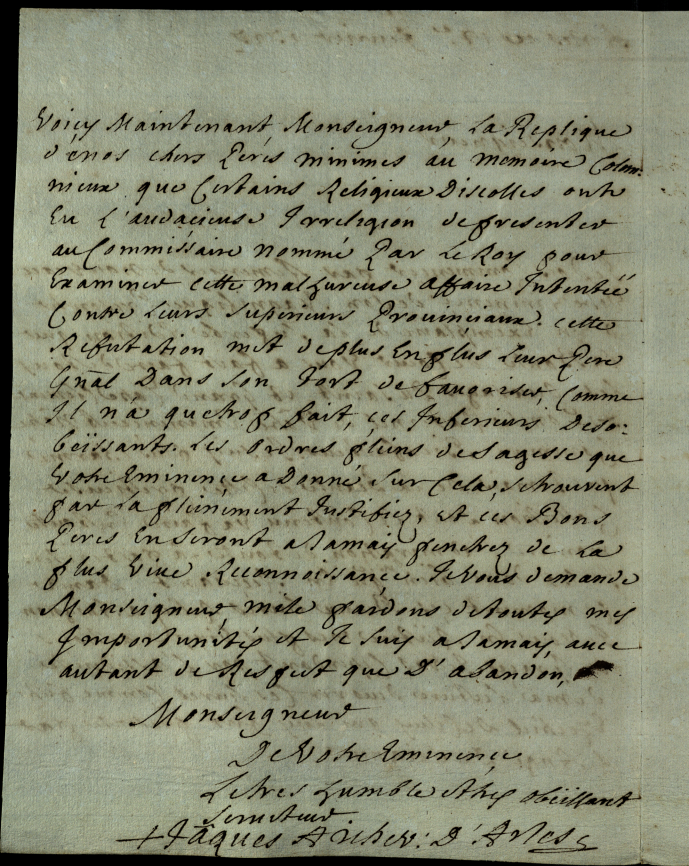 Voicy Maintenant, Monseigneur, La Replique
de nos chers Peres minimes au memoire Calom-
nieux que Certains Religieux Discolles ont
Eu L'audacieuse Irreligion de presenter
au Commissaire nommé Par Le Roy pour
Examiner cette malhureuse affaire Intentée
Contre Leurs Superieurs Provinciaux. cette
Refutation met de plus En plus Leur Pere
Gñal Dans Son tort de favoriser, Comme
Il n'a que trop fait, ces Inferieurs Deso-
beïssants. Les ordres pleins de Sagesse que
Votre Eminence a Donné Sur Cela, se trouvent
par La pleinement Justifiez, et ces Bons
Peres En Seront a Jamais penetrez de La
plus Vive Reconnoissance. Je Vous demande
Monseigneur, mile pardons de toutes mes
Importunités et Je Suis a Jamais, avec
autant de Respect que D'abandon,
Monseigneur
De Votre Eminence
Le tres humble et tres obëissant
Serviteur
+ Jaques Archev: D'Arles